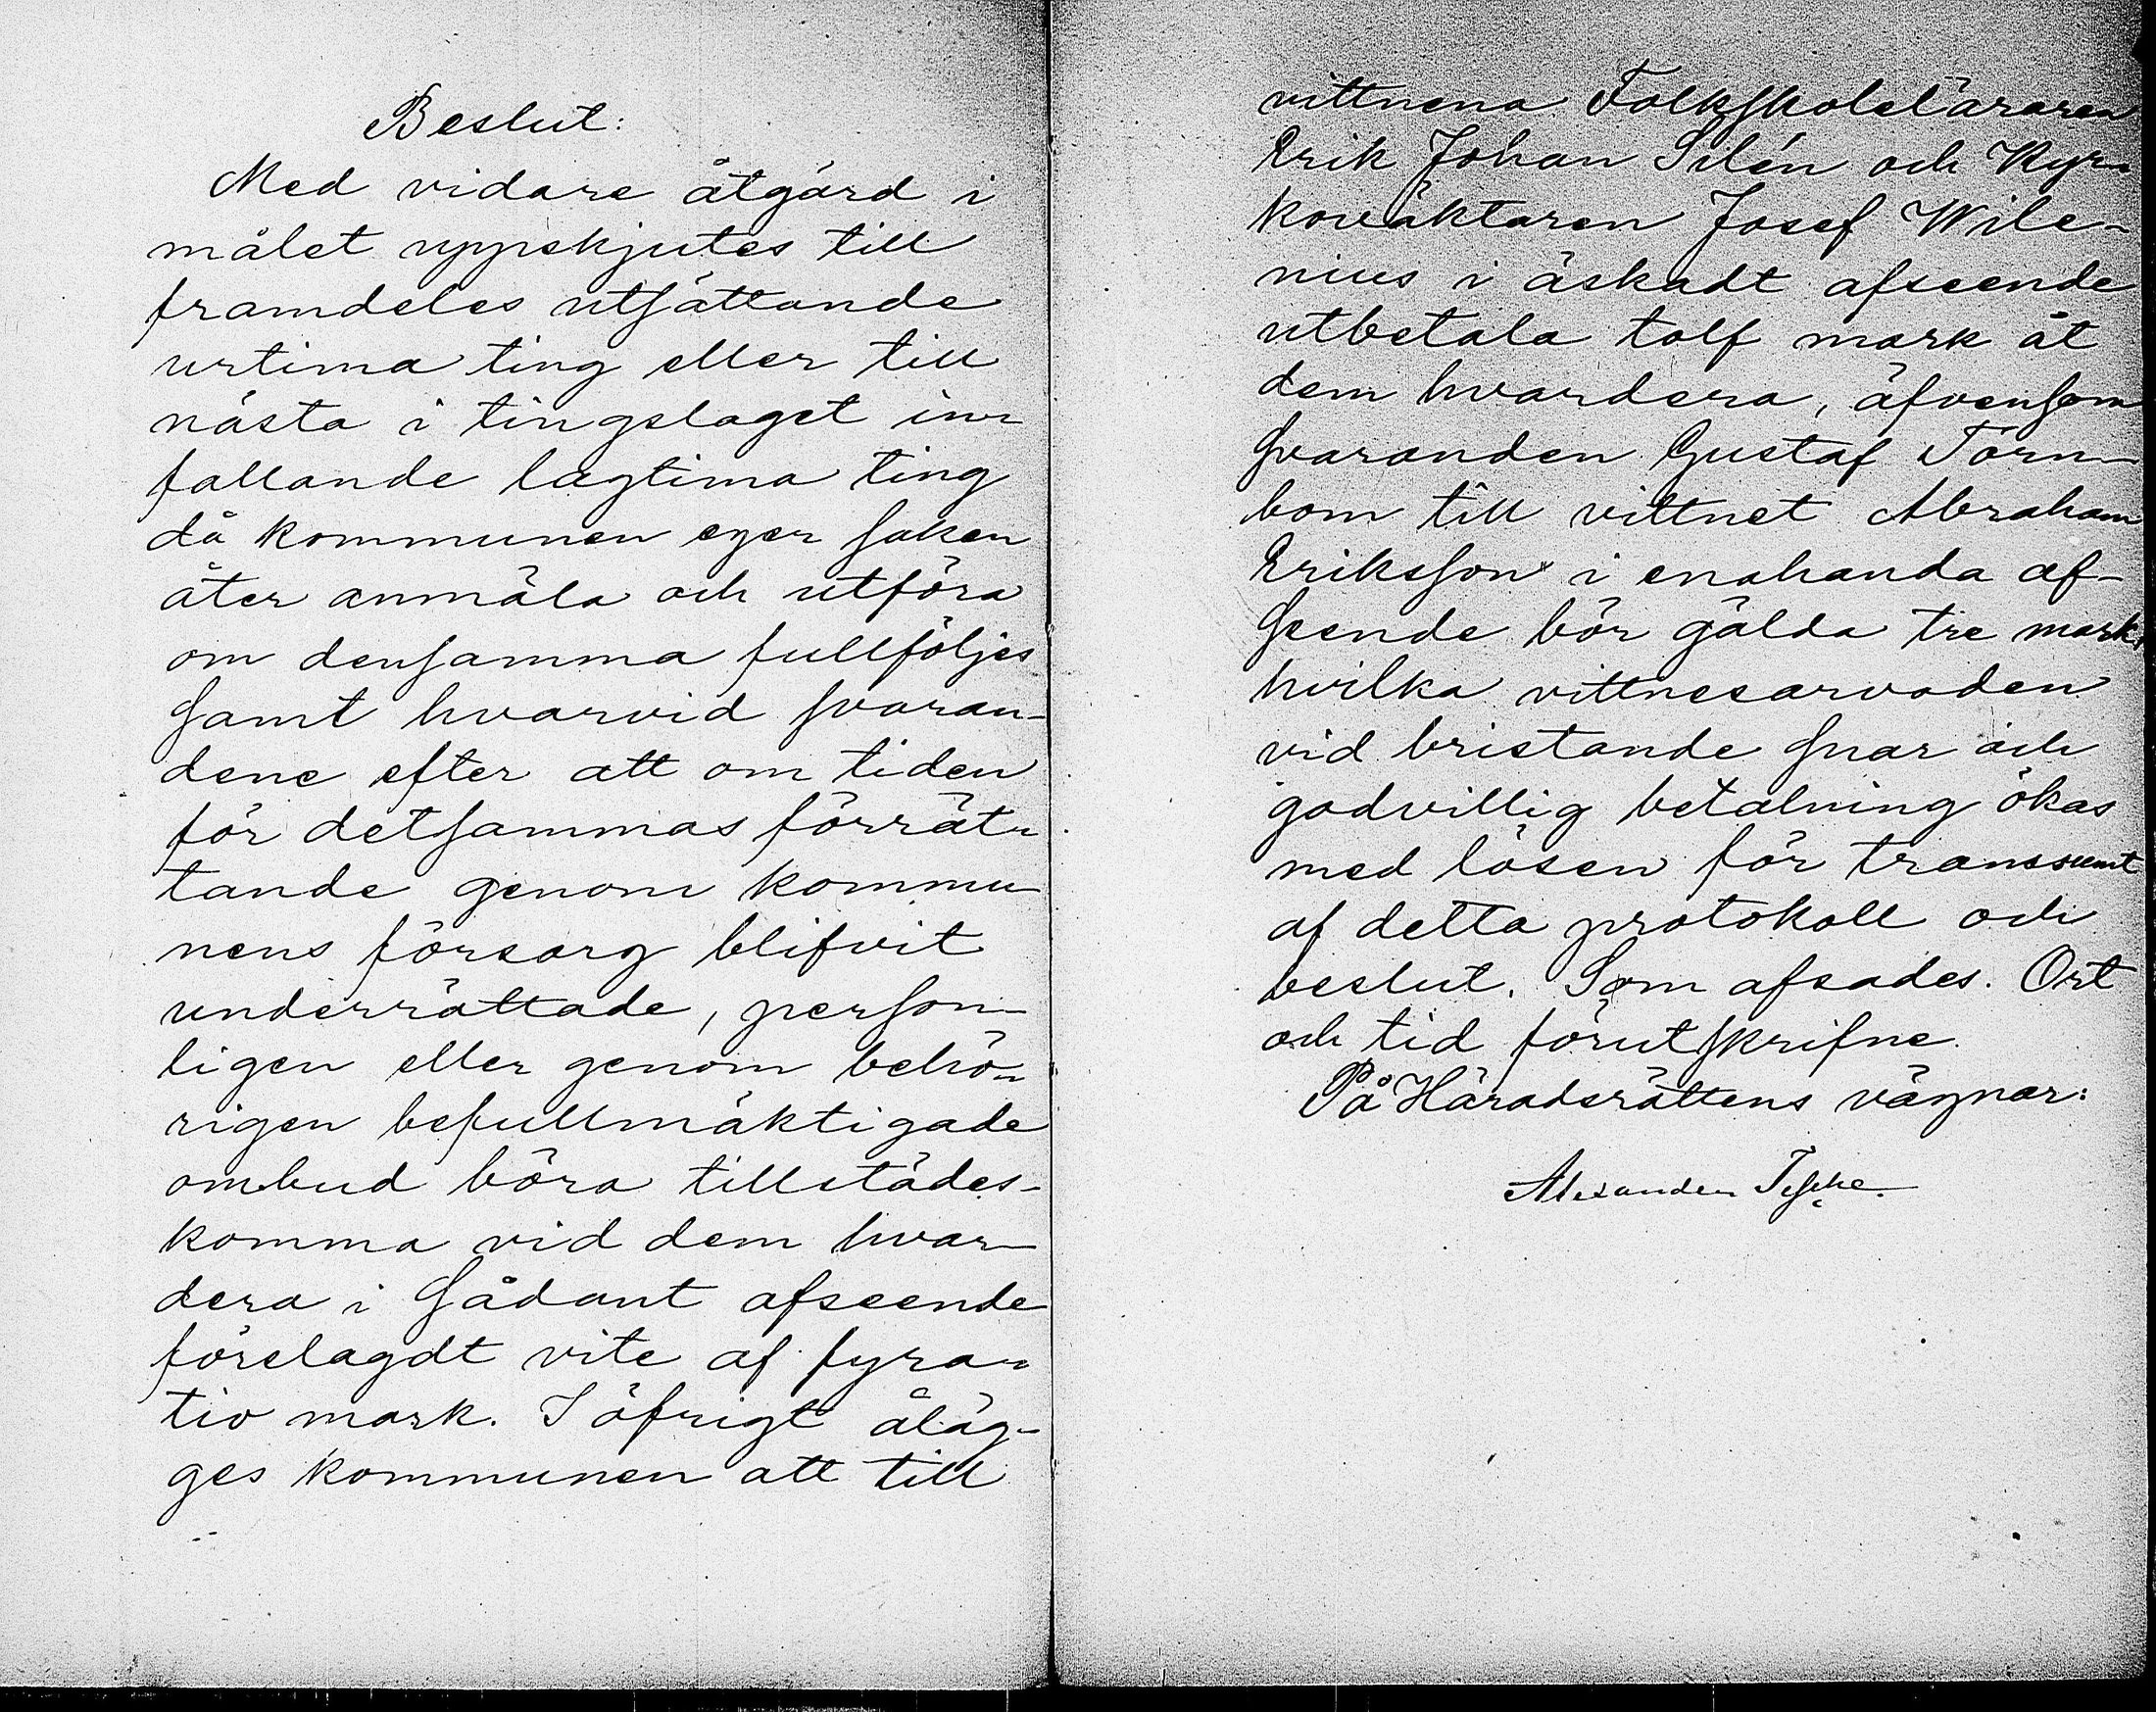 Beslut:
Med vidare åtgärd i
målet uppskjutes till
framdeles utsättande
urtima ting eller till
nästa i tingslaget in-
fallande lagtima ting
då kommunen eger saken
åter anmäla och utföra
om densamma fullföljes
samt hvarvid svaran-
dene efter att om tiden
för detsammas förrät-
tande genom kommu-
nens försorg blifvit
underrättade, person-
ligen eller genom behö-
rigen befullmäktigade
ombud böra tillstädes-
komma vid dem hvar-
dera i sådant afseende
förelagdt vite af fyra-
tio mark. I öfrigt åläg-
ges kommunen att till
vittnena Folkskoleläraren
Erik Johan Silén och Kyr-
koväktaren Josef Wile-
nius i äskadt afseende
utbetala tolf mark åt
dem hvardera, äfvensom
svaranden Gustaf Törn-
bom till vittnet Abraham
Eriksson i enahanda af-
seende bör gälda tre mark,
hvilka vittnesarvoden
vid bristande snar och
godvillig betalning ökas
med lösen för transsumt
af detta protokoll och
beslut. Som afsades. Ort
och tid förutskrifne.
På Häradsrättens vägnar:
Alexander